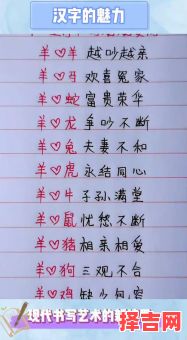 汉字的魅力
羊♡羊 越吵越亲
羊♡马 欢喜冤家
羊♡蛇 富贵荣华
羊♡龙 争吵不断
羊♡兔 夫妻不和
羊♡虎 永结同心
羊♡牛 子孙满堂
羊♡鼠 忧愁不断
羊♡猪 相亲相爱
羊♡狗 三观不合
羊♡鸡 缺少包容
现代书写艺术的
择吉网